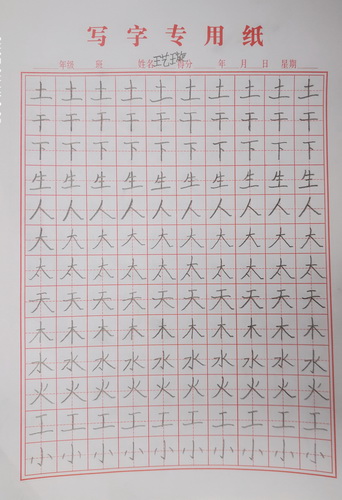 写字专用纸
年级 班 姓名 得分 年 月 日 星期
土 土 土 土 土 土 土 土 土 土
干 干 干 干 干 干 干 干 干 干
下 下 下 下 下 下 下 下 下 下
生 生 生 生 生 生 生 生 生 生
人 人 人 人 人 人 人 人 人 人
大 大 大 大 大 大 大 大 大 大
太 太 太 太 太 太 太 太 太 太
天 天 天 天 天 天 天 天 天 天
木 木 木 木 木 木 木 木 木 木
水 水 水 水 水 水 水 水 水 水
火 火 火 火 火 火 火 火 火 火
工 工 工 工 工 工 工 工 工 工
小 小 小 小 小 小 小 小 小 小